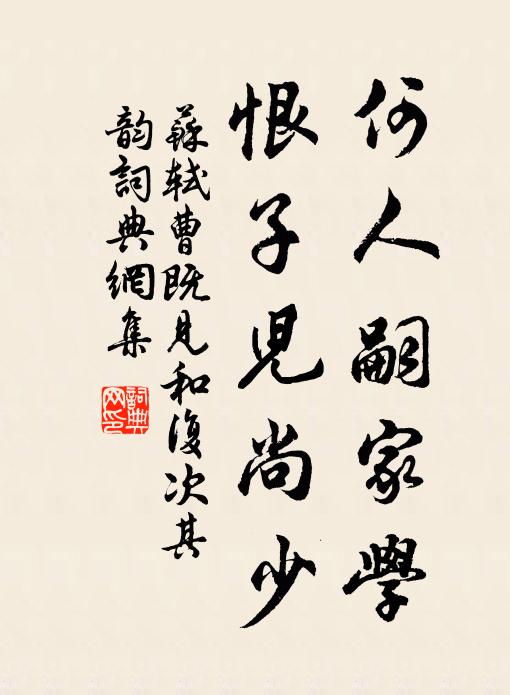 何人嗣家學
恨子兒尚少
蘇軾曹既見和復次其
韵詞典網集
詞典
网印